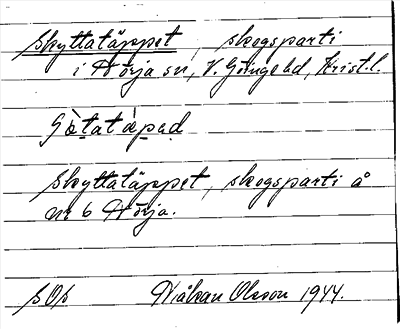 Skyttatäppet, skogsparti
i Nörja sn, V. Göinge hd, Krist.l.
Skyttatäppet, skogsparti å
nr 6 Nörja.
SOS Håkan Olsson 1944.